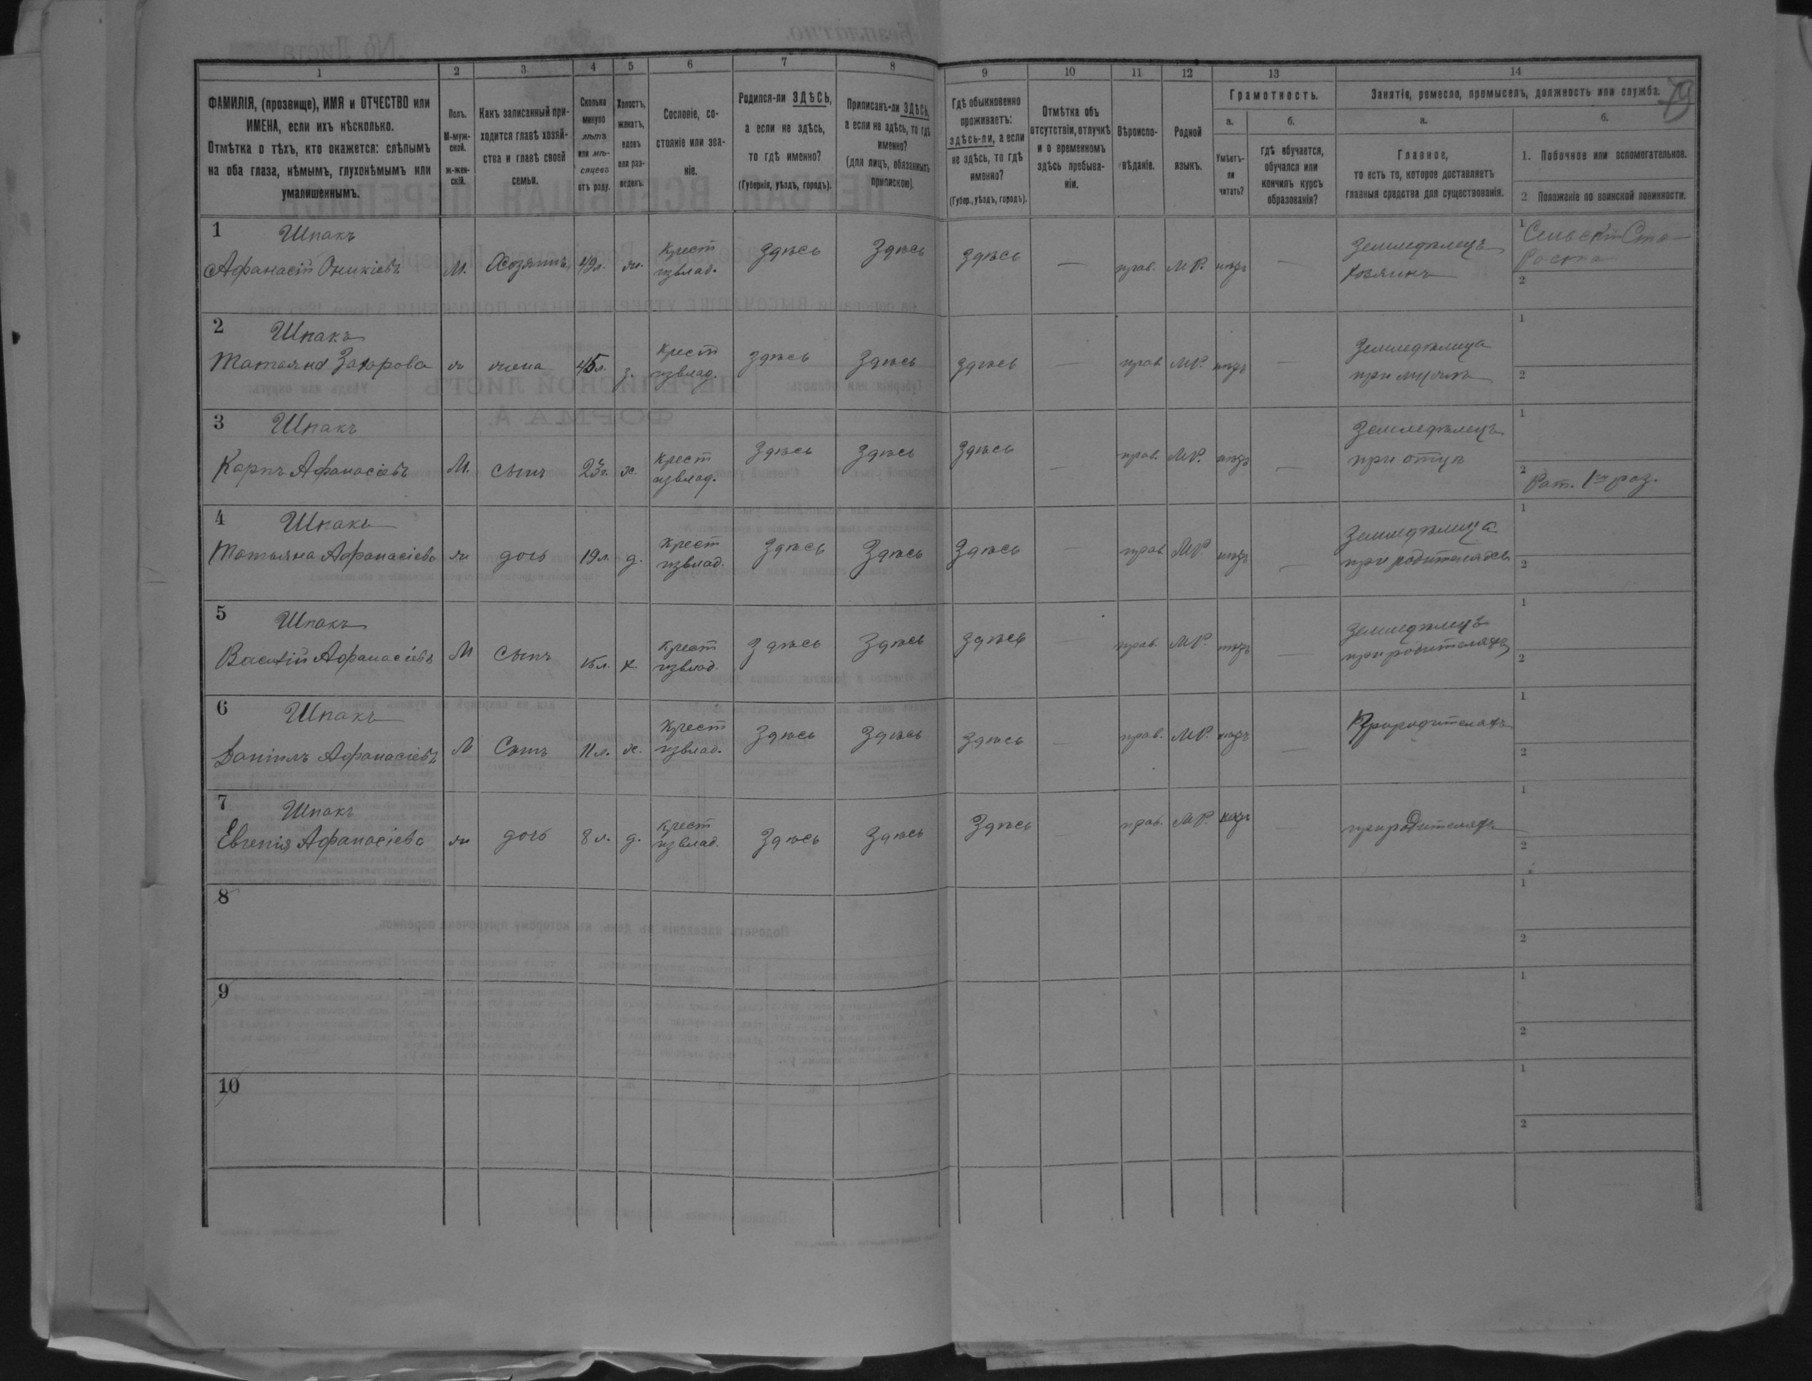 79
1 2 3 4 5 6 7 8 9 10 11 12 13 14
ФАМИЛІЯ, (прозвище), ИМЯ и ОТЧЕСТВО или
ИМЕНА, если ихъ нѣсколько.
Отмѣтка о тѣхъ, кто окажется: слѣпымъ
на оба глаза, нѣмымъ, глухонѣмымъ или
умалишеннымъ.
Полъ.
М-муж-
ской.
Ж-жен-
скій.
Какъ записанный при-
ходится главѣ хозяй-
ства и главѣ своей
семьи.
Сколько
минуло
лѣтъ
или мѣ-
сяцевъ
отъ роду.
Холостъ,
женатъ,
вдовъ
или раз-
веденъ.
Сословіе, со-
стояніе или зва-
ніе.
Родился-ли ЗДѢСЬ,
а если не здѣсь,
то гдѣ именно?
(Губернія, уѣздъ, городъ).
Приписанъ-ли ЗДѢСЬ,
а если не здѣсь, то гдѣ
именно?
(для лицъ, обязанныхъ
припискою).
Гдѣ обыкновенно
проживаетъ:
здѣсь-ли, а если
не здѣсь, то гдѣ
именно?
(Губер., уѣздъ, городъ).
Отмѣтка объ
отсутствіи, отлучкѣ
и о временномъ
здѣсь пребыва-
ніи.
Вѣроиспо-
вѣданіе.
Родной
языкъ.
Грамотность.
а.
Умѣетъ-
ли
читать?
б.
гдѣ обучается,
обучался или
кончилъ курсъ
образованія?
Занятія, ремесло, промыселъ, должность или служба.
а.
Главное,
то есть то, которое доставляетъ
главныя средства для существованія.
б.
1. Побочное или вспомогательное.
2 Положеніе по воинской повинности.
1 Шпакъ
Афанасій Оникіевъ М. 49л. ж. Крест извлад. Здѣсь Здѣсь Здѣсь — прав. МР. — Земледѣлецъ
хозяинъ
1 Сельскій Ста-
роста
2
2 Шпакъ
Татьяна Захарова ж жена 45л. з. Крест извлад. Здѣсь Здѣсь Здѣсь — прав. МР. — Земледѣлица
при мужѣ
1
2
3 Шпакъ
Карпъ Афанасіевъ М. сынъ 23г. х. Крест извлад. Здѣсь Здѣсь Здѣсь — прав. МР. — Земледѣлецъ
при отцѣ
1
2 Рат. 1го раз.
4 Шпакъ
Татьяна Афанасіева ж дочь 19л. д. Крест извлад. Здѣсь Здѣсь Здѣсь — прав МР. — Земледѣлица
при родителяхъ
1
2
5 Шпакъ
Василій Афанасіевъ М сынъ 15л. х. Крест извлад. Здѣсь Здѣсь Здѣсь — прав. МР. — Земледѣлецъ
при родителяхъ
1
2
6 Шпакъ
Даніилъ Афанасіевъ М Сынъ 11л. х. Крест извлад. Здѣсь Здѣсь Здѣсь — прав. МР. — При родителяхъ
1
2
7 Шпакъ
Евгенія Афанасіева ж дочь 8л. д. Крест извлад. Здѣсь Здѣсь Здѣсь — прав. МР. — при родителяхъ
1
2
8
1
2
9
1
2
10
1
2